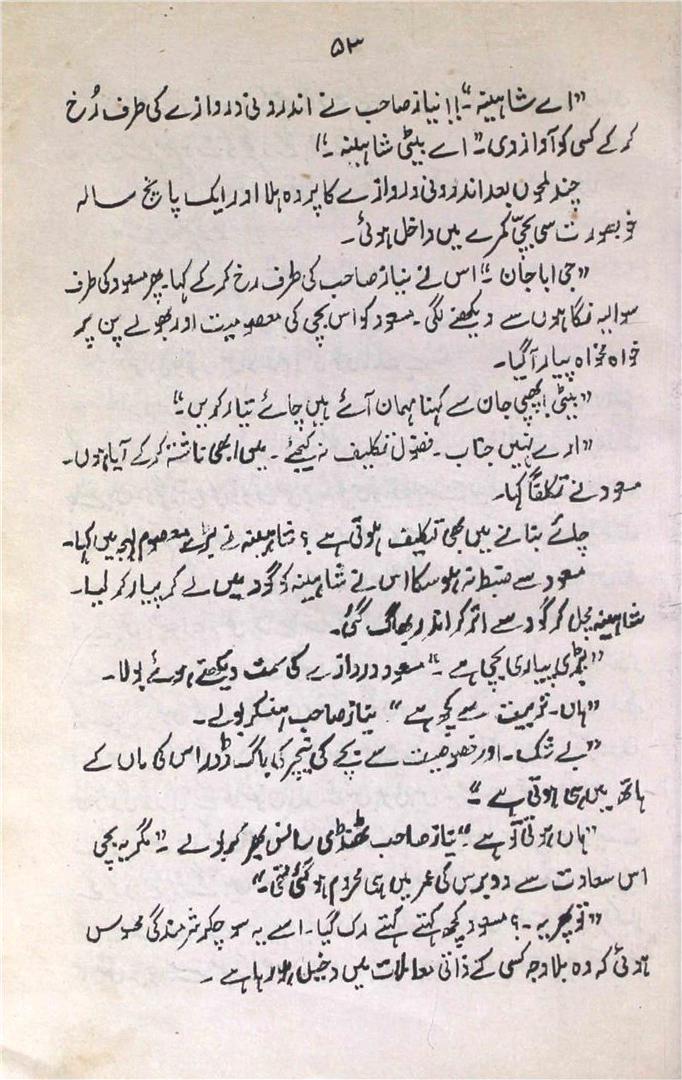 ۵۳
”اے شاہینہ ۔“!! نیاز صاحب نے اندرونی دروازے کی طرف رُخ
کر کے کسی کو آواز دی۔ ”اے بیٹی شاہینہ ۔“
چند لمحوں بعد اندرونی دروازے کا پردہ ہلا اور ایک پانچ سالہ
خوبصورت سی بچّی کمرے میں داخل ہوئی۔
”جی ابا جان ۔“ اس نے نیاز صاحب کی طرف رخ کر کے کہا۔ پھر مسعود کی طرف
سوالیہ نگاہوں سے دیکھنے لگی۔ مسعود کو اس بچی کی معصومیت اور بھولے پن پر
خواہ مخواہ پیار آ گیا۔
”بیٹی! پھپی جان سے کہنا مہمان آئے ہیں چائے تیار کریں ۔“
”ارے نہیں جناب ۔ فضول تکلیف نہ کیجئے ۔ میں ابھی ناشتہ کر کے آیا ہوں۔
مسعود نے تکلفاً کہا۔
چائے بنانے میں بھی تکلیف ہوتی ہے ؟ شاہینہ نے بڑے معصوم لہجہ میں کہا۔
مسعود سے ضبط نہ ہو سکا اس نے شاہینہ کو گود میں لے کر پیار کر لیا۔
شاہینہ مچل کر گود سے اتر کر اندر بھاگ گئی۔
”بڑی پیاری بچی ہے ۔“ مسعود دروازے کی سمت دیکھتے ہوئے بولا۔
”ہاں۔ تربیت سے کچھ ہے“ نیاز صاحب ہنسکر بولے۔
”بے شک ۔ اور خصوصیت سے بچے کی نیچر کی باگ ڈور اس کی ماں کے
ہاتھ میں ہی ہوتی ہے ۔“
”ہاں ہوتی تو ہے“۔ نیاز صاحب ٹھنڈی سانس بھر کر بولے ۔ ”مگر یہ بچی
اس سعادت سے دو برس کی عمر میں ہی محروم ہو گئی تھی۔“
”تو پھر یہ ۔؟ مسعود کچھ کہتے کہتے رک گیا۔ اسے یہ سوچکر شرمندگی محسوس
ہوئی کہ وہ بلا وجہ کسی کے ذاتی معاملات میں دخیل ہو رہا ہے ۔